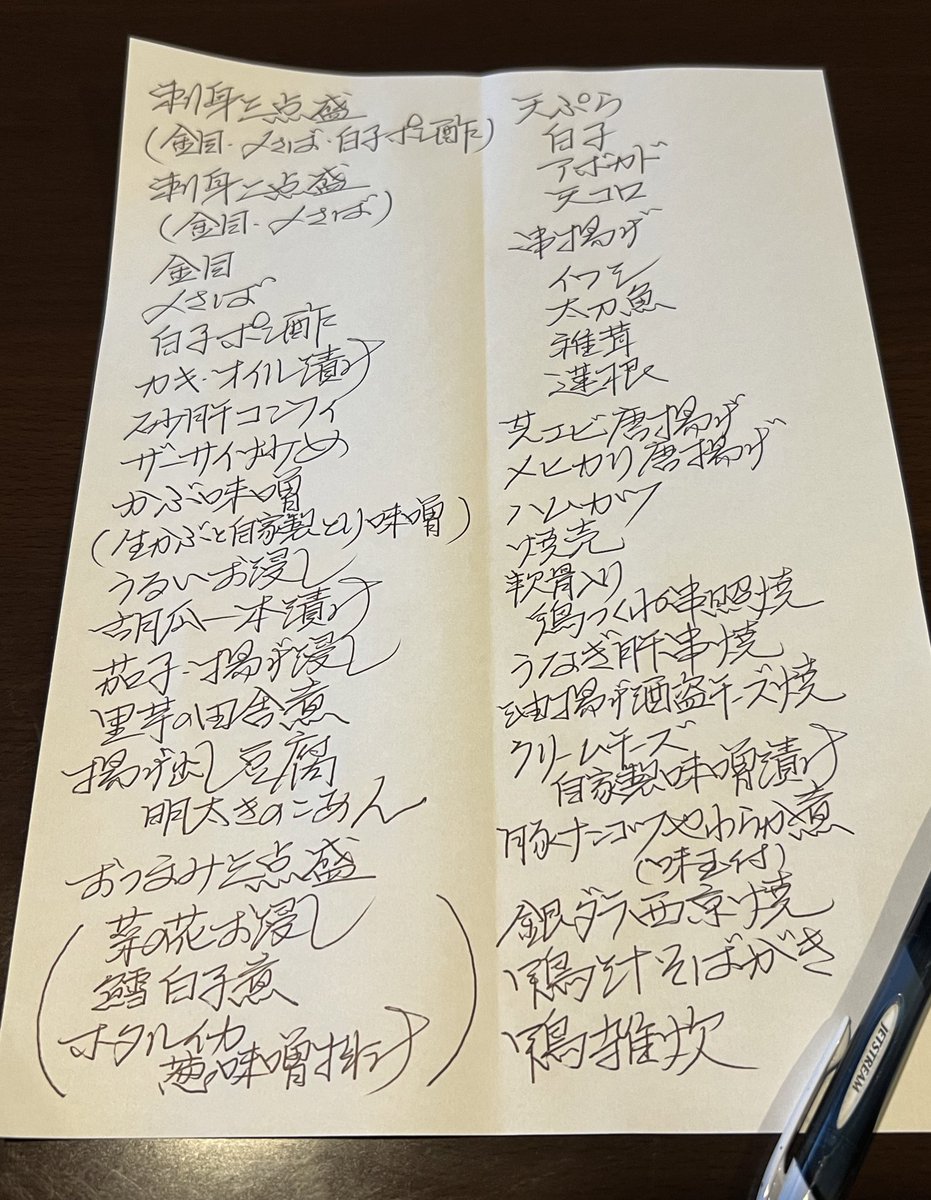 刺身三点盛
(金目・〆さば・白子ポン酢)
刺身二点盛
(金目・〆さば)
金目
〆さば
白子ポン酢
カキ・オイル漬け
砂肝コンフィ
ザーサイ炒め
かぶ味噌
(生かぶと自家製とり味噌)
うるいお浸し
胡瓜一本漬け
茄子・揚げ浸し
里芋の田舎煮
揚げ出し豆腐
明太きのこあん
おつまみ三点盛
菜の花お浸し
鱈白子煮
ホタルイカ
葱味噌掛け
天ぷら
白子
アボカド
天コロ
串揚げ
イワシ
太刀魚
椎茸
蓮根
芝エビ唐揚げ
メヒカリ唐揚げ
ハムカツ
焼売
軟骨入り
鶏つくね串照焼
うなぎ肝串焼
油揚げ酒盗チーズ焼
クリームチーズ
自家製味噌漬け
豚ナンコツやわらか煮
(味玉付)
銀ダラ西京焼
鴨汁そばがき
鴨雑炊
JETSTREAM